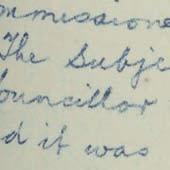 ommissione
The Subje
ouncillor
d it was